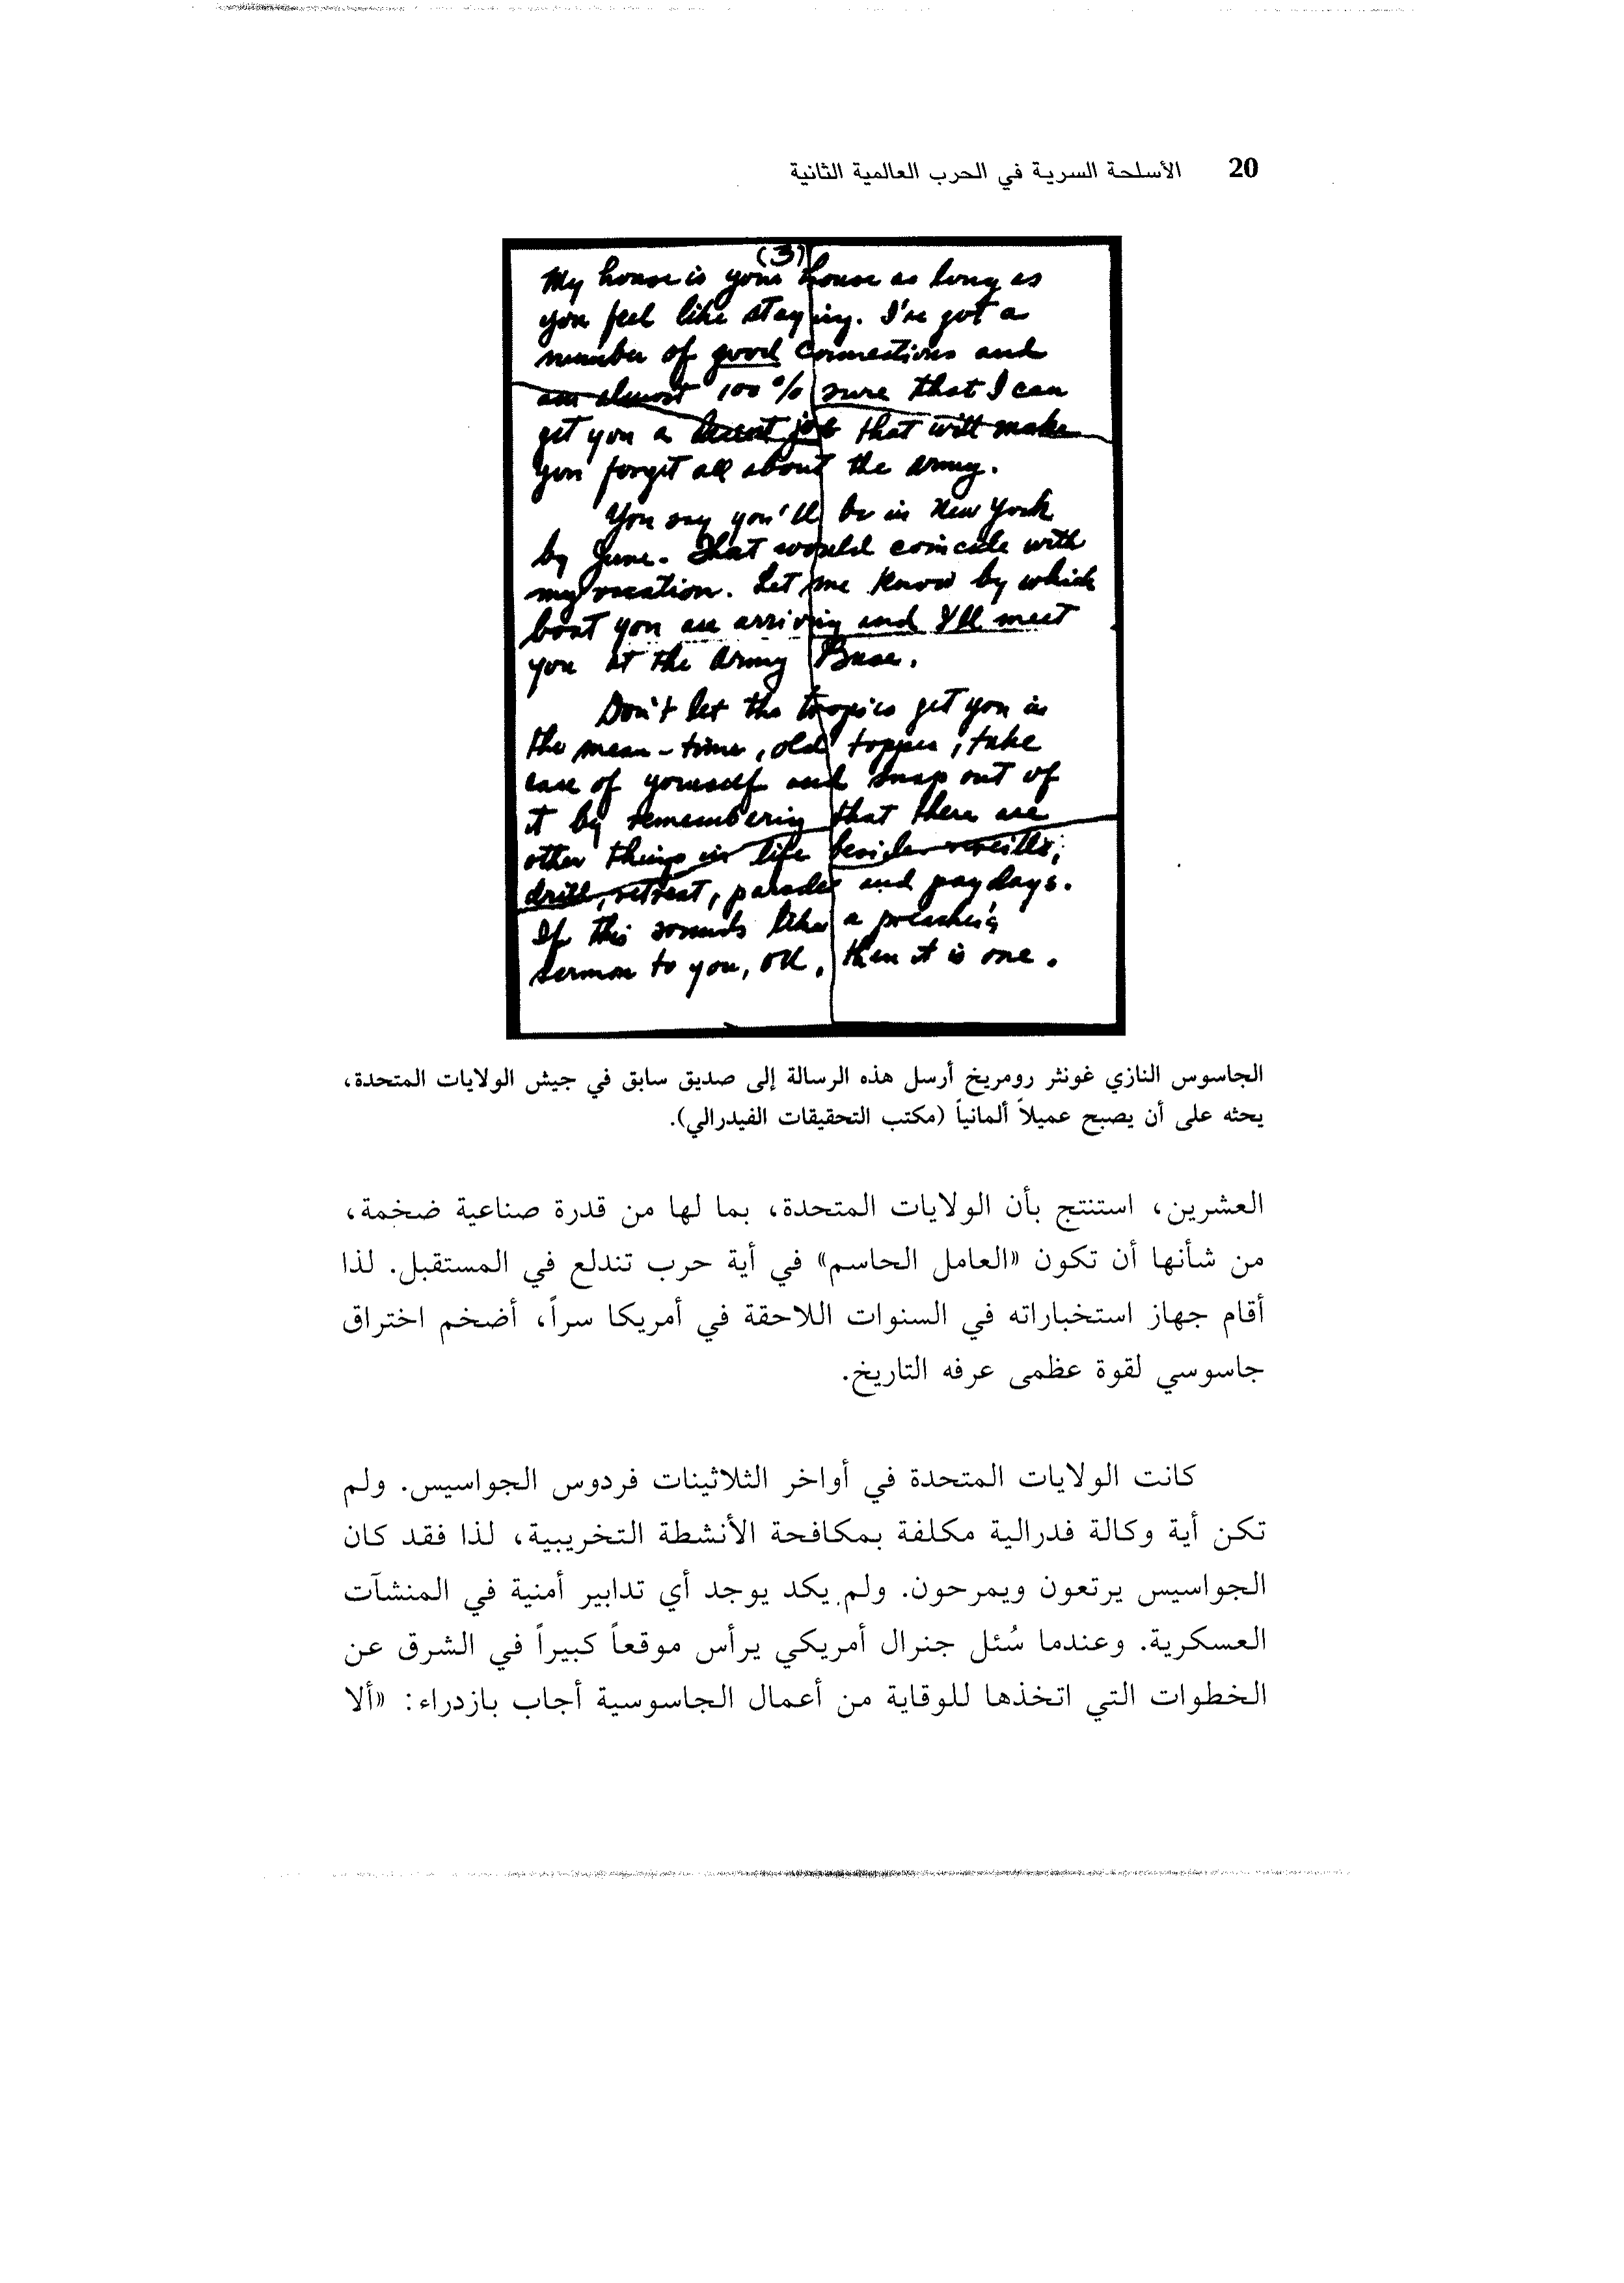 20 الأسلحة السرية في الحرب العالمية الثانية
(3)
My house is your house as long as
you feel like staying. I've got a
number of good connections and
am almost 100% sure that I can
get you a decent job that will make
you forget all about the army.
You say you'll be in New York
by June. That would coincide with
my vacation. Let me know by which
boat you are arriving and I'll meet
you at the Army Base.
Don't let the tropics get you in
the mean-time, old topper, take
care of yourself and snap out of
it by remembering that there are
other things in life beside reveille,
drill, retreat, parades and pay days.
If this sounds like a preacher's
sermon to you, OK, then it is one.
الجاسوس النازي غونثر رومريخ أرسل هذه الرسالة إلى صديق سابق في جيش الولايات المتحدة،
يحثه على أن يصبح عميلاً ألمانياً (مكتب التحقيقات الفيدرالي).
العشرين، استنتج بأن الولايات المتحدة، بما لها من قدرة صناعية ضخمة،
من شأنها أن تكون «العامل الحاسم» في أية حرب تندلع في المستقبل. لذا
أقام جهاز استخباراته في السنوات اللاحقة في أمريكا سراً، أضخم اختراق
جاسوسي لقوة عظمى عرفه التاريخ.
كانت الولايات المتحدة في أواخر الثلاثينات فردوس الجواسيس. ولم
تكن أية وكالة فدرالية مكلفة بمكافحة الأنشطة التخريبية، لذا فقد كان
الجواسيس يرتعون ويمرحون. ولم يكد يوجد أي تدابير أمنية في المنشآت
العسكرية. وعندما سُئل جنرال أمريكي يرأس موقعاً كبيراً في الشرق عن
الخطوات التي اتخذها للوقاية من أعمال الجاسوسية أجاب بازدراء: «ألا